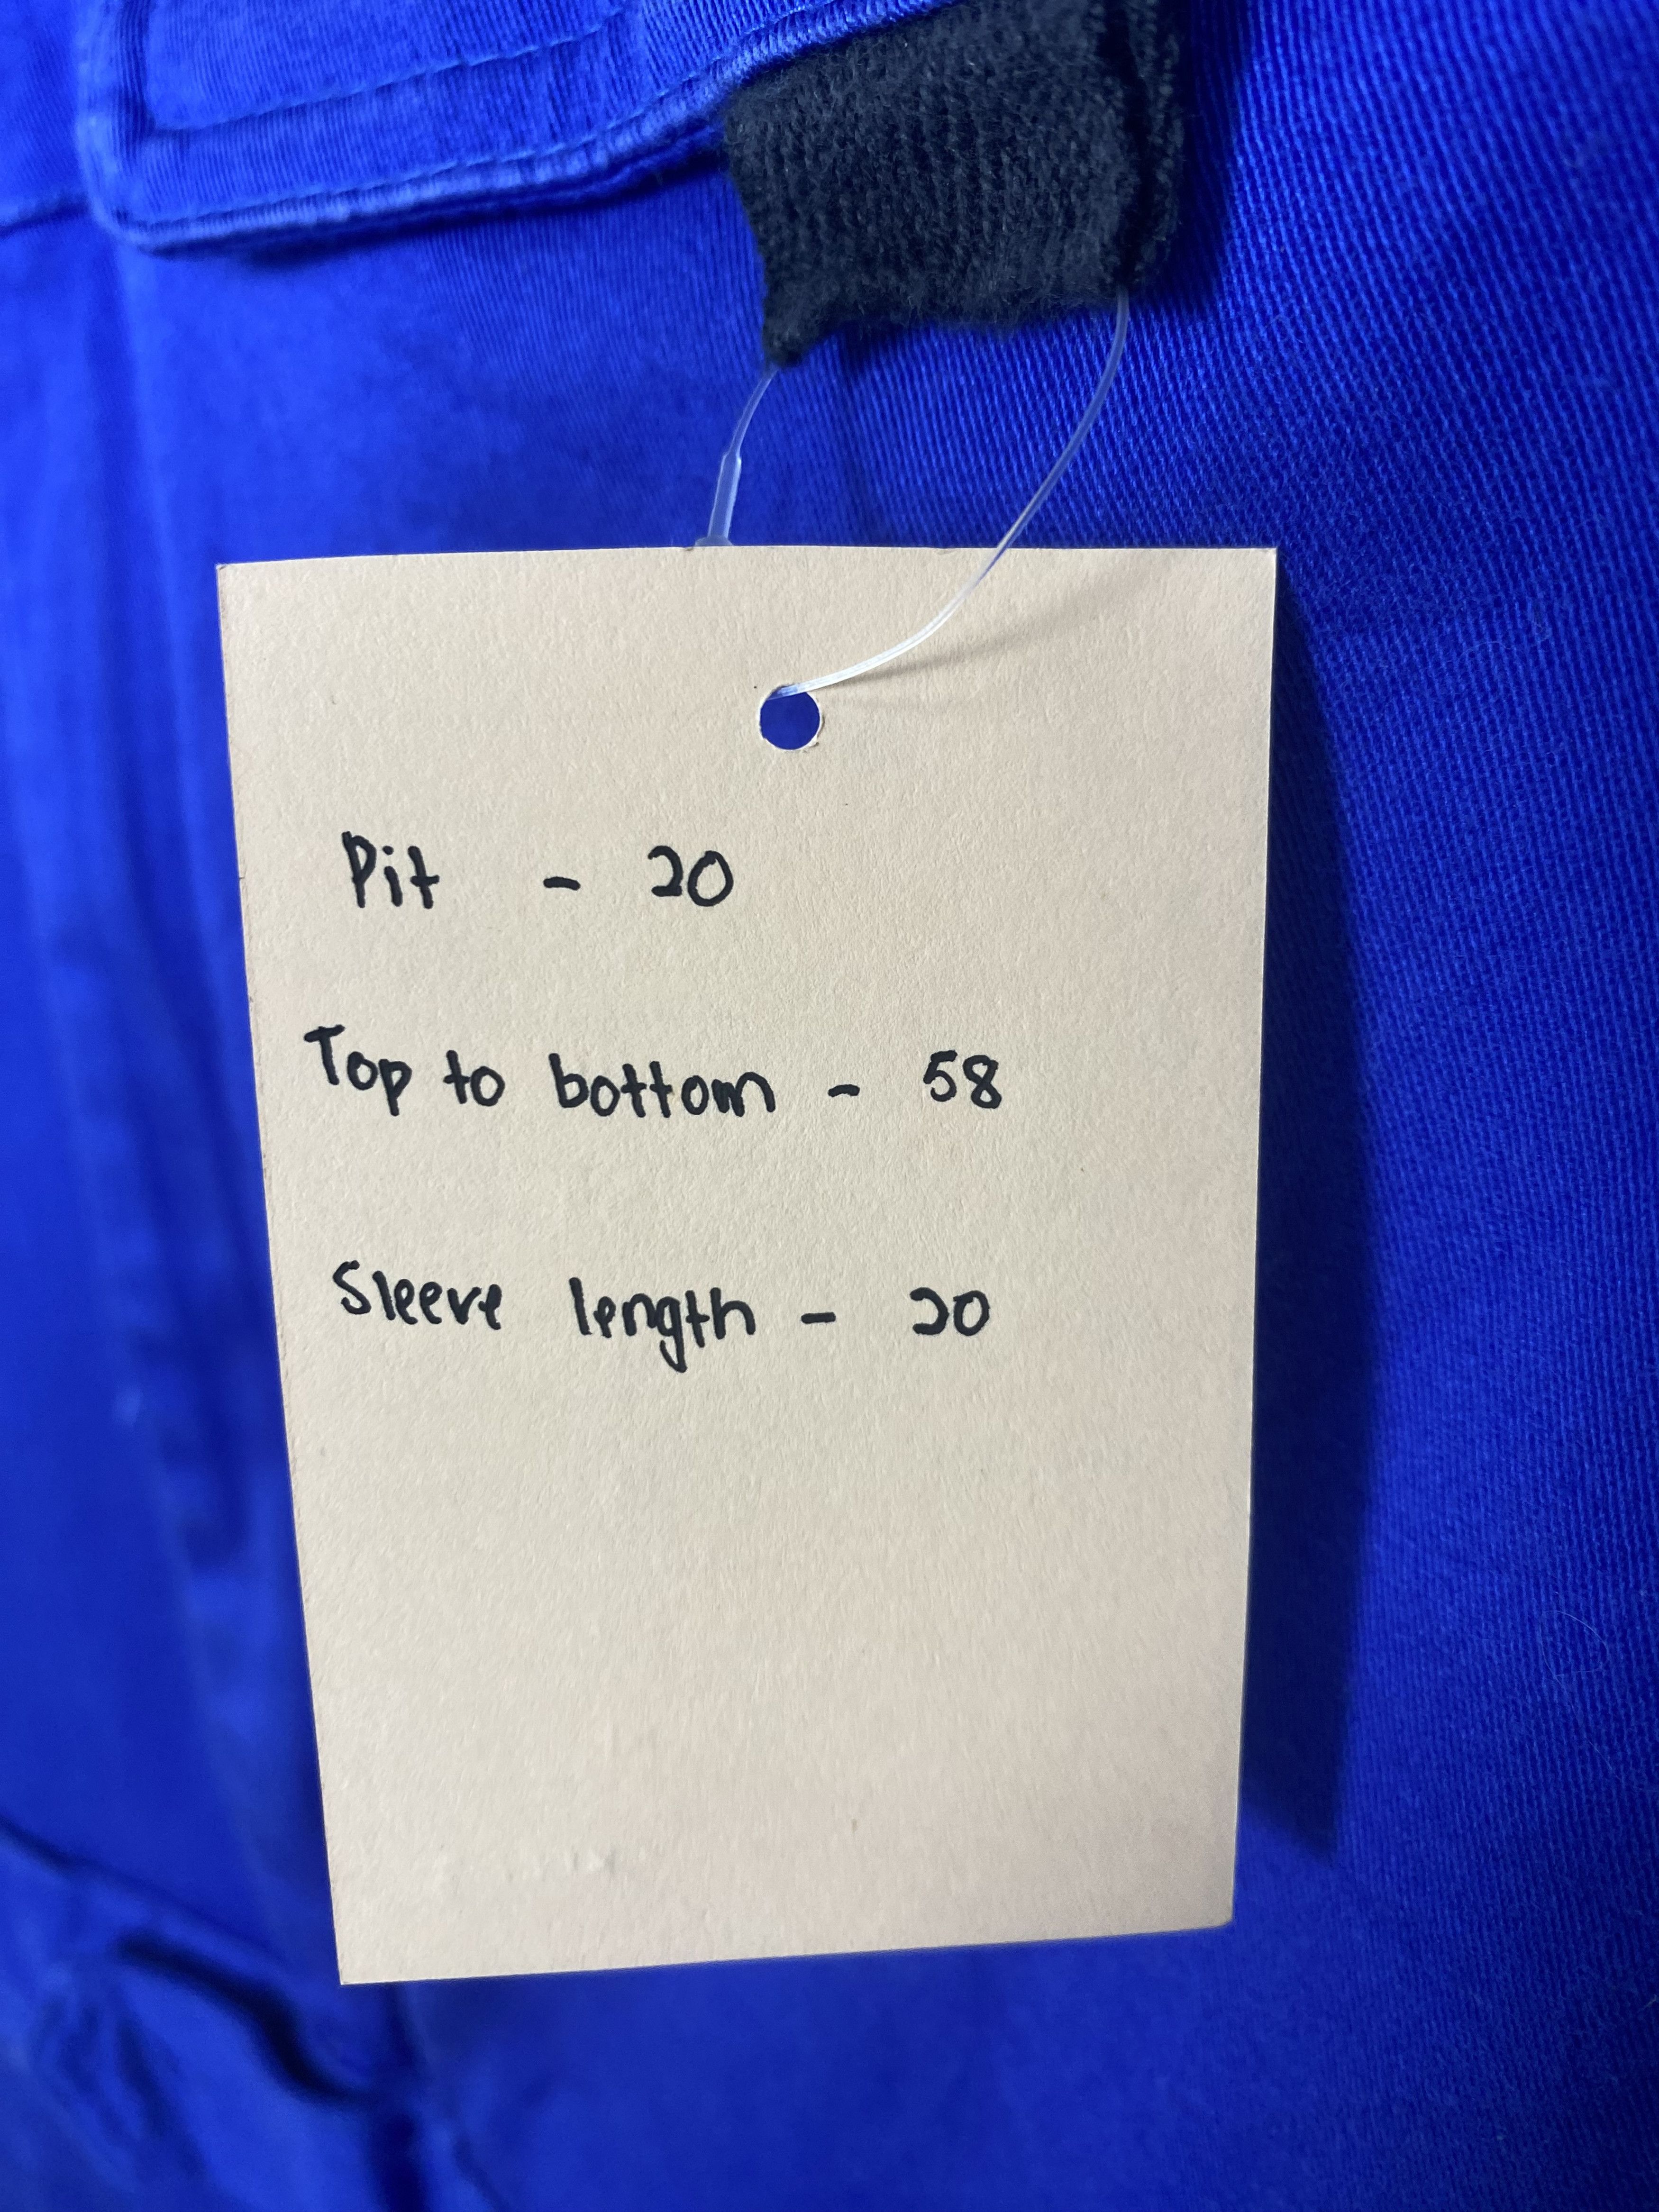 Pit - 20
Top to bottom - 58
Sleeve length - 20